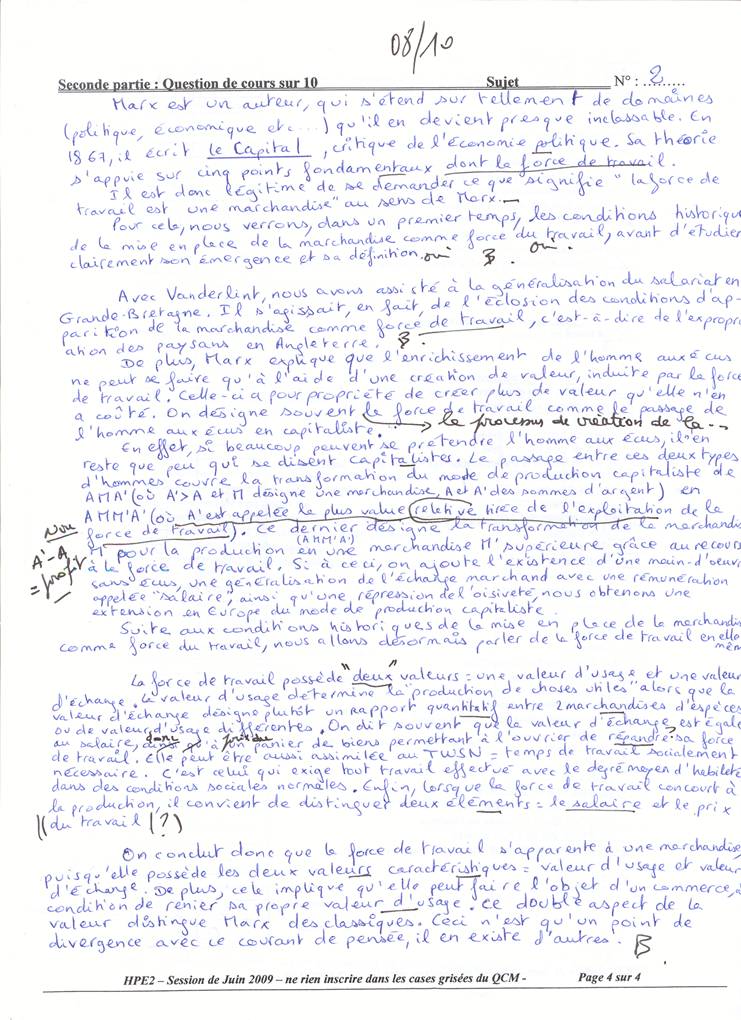 08/10
Seconde partie : Question de cours sur 10 Sujet N° : 2
Marx est un auteur, qui s'étend sur tellement de domaines
(politique, économique etc...) qu'il en devient presque inclassable. En
1867, il écrit le Capital, critique de l'Economie politique. Sa théorie
s'appuie sur cinq points fondamentaux dont la force de travail.
Il est donc légitime de se demander ce que signifie "la force de
travail est une marchandise" au sens de Marx.
Pour cela, nous verrons, dans un premier temps, les conditions historiqu
de la mise en place de la marchandise comme force du travail, avant d'étudier
clairement son émergence et sa définition. oui B. oui.
Avec Vanderlint, nous avons assisté à la généralisation du salariat en
Grande-Bretagne. Il s'agissait, en fait, de l'éclosion des conditions d'ap-
parition de la marchandise comme force de travail, c'est-à-dire de l'expropri
ation des paysans en Angleterre. B.
De plus, Marx explique que l'enrichissement de l'homme aux écus
ne peut se faire qu'à l'aide d'une création de valeur, induite par la force
de travail. Celle-ci a pour propriété de créer plus de valeur qu'elle n'en
a coûté. On désigne souvent la force de travail comme le passage de
l'homme aux écus en capitaliste. le processus de création de la...
En effet, si beaucoup peuvent se prétendre l'homme aux écus, il en
reste que peu qui se disent capitalistes. Le passage entre ces deux types
d'hommes couvre la transformation du mode de production capitaliste de
AMA' (où A'>A et M désigne une marchandise, A et A' des sommes d'argent) en
AMM'A' (où A' est appelée la plus value relative tirée de l'exploitation de la
Non
force de travail). Ce dernier désigne la transformation de la marchandis
(AMM'A')
A'-A
M pour la production en une marchandise M' supérieure grâce au recours
= profit
à la force de travail. Si à ceci, on ajoute l'existence d'une main-d'oeuvre
sans écus, une généralisation de l'échange marchand avec une rémunération
appelée "salaire", ainsi qu'une répression de l'oisiveté, nous obtenons une
extension en Europe du mode de production capitaliste.
Suite aux conditions historiques de la mise en place de la marchandis
comme force du travail, nous allons désormais parler de la force de travail en elle
mêm
La force de travail possède "deux" valeurs = une valeur d'usage et une valeur
d'échange. La valeur d'usage détermine la "production de choses utiles" alors que la
valeur d'échange désigne plutôt un rapport quantitatif entre 2 marchandises d'espèces
ou de valeur d'usage différentes. On dit souvent que la valeur d'échange est égale
au salaire, donc à prix du panier de biens permettant à l'ouvrier de répandre sa force
de travail. Elle peut être aussi assimilée au TWSN = temps de travail socialement
nécessaire. C'est celui qui exige tout travail effectué avec le degré moyen d'habileté
dans des conditions sociales normales. Enfin, lorsque la force de travail concourt à
la production, il convient de distinguer deux éléments = le salaire et le prix
du travail (?)
On conclut donc que la force de travail s'apparente à une marchandise,
puisqu'elle possède les deux valeurs caractéristiques = valeur d'usage et valeur
d'échange. De plus, cela implique qu'elle peut faire l'objet d'un commerce, à
condition de renier sa propre valeur d'usage. Ce double aspect de la
valeur distingue Marx des classiques. Ceci n'est qu'un point de
divergence avec ce courant de pensée, il en existe d'autres. B
HPE2 – Session de Juin 2009 – ne rien inscrire dans les cases grisées du QCM - Page 4 sur 4